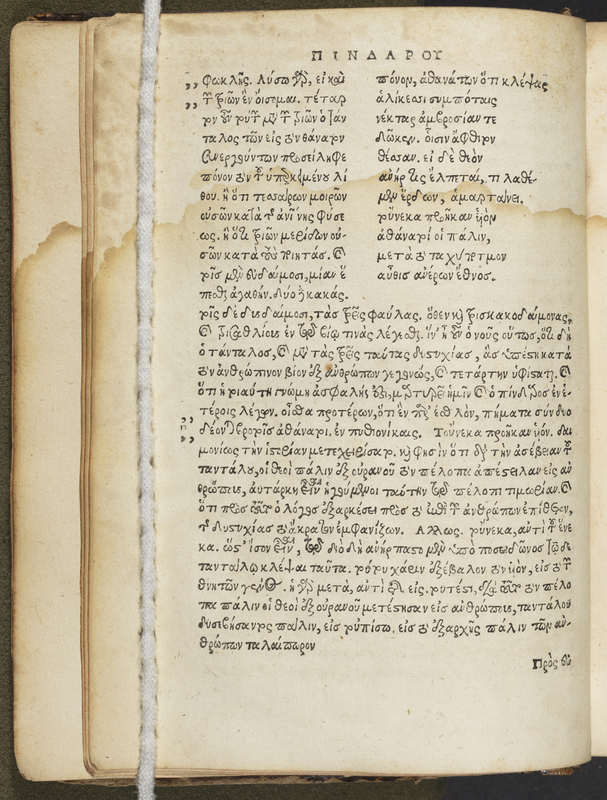 ΠΙΝΔΑΡΟΥ
φωκλῆς. λύσω γὰρ, εἰ καὶ
τῶν τριῶν ἓν οἴσομαι. τέταρ
τον οὖν τοῦτον μετὰ τριῶν ὁ Τάν
ταλος τῶν εἰς τὸν θάνατον
συνεργούντων προσείληφε
πόνον τὸν τοῦ ὑπερκειμένου λί
θου. ἢ ὅτι τεσσάρων μοιρῶν
οὐσῶν κατὰ τὴν ἀνίνης φύσε
ως. ἢ ὅτι τριῶν μερίδων οὐ-
σῶν κατὰ τοὺς ποιητάς. καὶ
τοῖς μὲν εὐδαίμοσι, μίαν ἐ
πεσθαι ἀγαθήν. δύο δὲ κακάς.
πόνον, ἀθανάτων ὅτι κλέψας
ἁλίκεσσι συμπόταις
νέκταρ ἀμβροσίαν τε
δῶκεν. οἷσιν ἄφθιτον
θέσσαν. εἰ δὲ θεὸν
ἀνήρ τις ἔλπεταί, τι λαθέ-
μεν ἔρδων, ἁμαρτάνει.
τοὔνεκα προῆκαν υἱὸν
ἀθάνατοί οἱ πάλιν,
μετὰ τὸ ταχύποτμον
αὖθις ἀνέρων ἔθνος.
τοῖς δὲ δυσδαίμοσι, τὰς τρεῖς φαύλας. ὅθεν καὶ τρισκακοδαίμονας,
καὶ τρισαθλίους ἐν τῷ βίῳ τινὰς λέγεσθαι. ἵν' ᾖ οὖν ὁ νοῦς οὕτως, ὅτι δὴ
ὁ τάνταλος, καὶ μετὰ τὰς τρεῖς ταύτας δυστυχίας, ἃς ὑπέστη κατὰ
τὸν ἀνθρώπινον βίον ἐξ ἀνθρώπων γεγονὼς, καὶ τετάρτην ὑφίσταται. καὶ
ὅτι ἡ τοιαύτη γνώμη ἀσφαλής ἐστι, μαρτυρεῖ ἡμῖν καὶ ὁ πίνδαρος ἐν ἑ-
τέροις λέγων. οἶσθα προτέρων, ὅτι ἓν παρ' ἐσθλὸν, πήματα σύνδυο
δέονται βροτοῖς ἀθάνατοι. ἐν πυθιονίκαις. Τοὔνεκα προῆκαν υἱόν. δαι
μονίως τὴν ἱστορίαν μετεχειρίσατο. καὶ φησὶν ὅτι διὰ τὴν ἀσέβειαν τοῦ
ταντάλου, οἱ θεοὶ πάλιν ἐξ οὐρανοῦ τὸν πέλοπα ἀπέστειλαν εἰς ἀν
θρώπους, αὐτάρκη εἶναι ἡγούμενοι ταύτην τῷ πέλοπι τιμωρίαν. καὶ
ὅτι πρὸς τοῦτο ὁ λόγος ἐξαρκέσει πρὸς τὸ κατὰ τῶν ἀνθρώπων ἐπίθεον,
τῆς δυστυχίας τὸ ἄκρατον ἐμφανίζων. Αλλως. τοὔνεκα, αὐτὶ τοῦ ἕνε
κα. ὥστ' ἴσον εἶναι, τῷ διὸ δὴ ἀνήρπαστο μὲν ὑπὸ ποσειδῶνος διὰ δὲ
τανταλῳ κλέψαι ταῦτα. τούτου χάριν ἐξέβαλον τὸν υἱὸν, εἰς τὸ τῶν
θνητῶν γένος. ἡ γὰρ μετὰ, αὐτὶ τῆς εἰς. τουτέστι, διὰ τοῦτο τὸν πέλο
πα πάλιν οἱ θεοὶ ἐξ οὐρανοῦ μετέστησαν εἰς ἀνθρώπους, ταντάλου
δυσεβήσαντος πάλιν, εἰς τοὐπίσω, εἰς τὸ ἐξαρχῆς πάλιν τῶν ἀν-
θρώπων ταλαίπωρον
Πρὸς εὐ